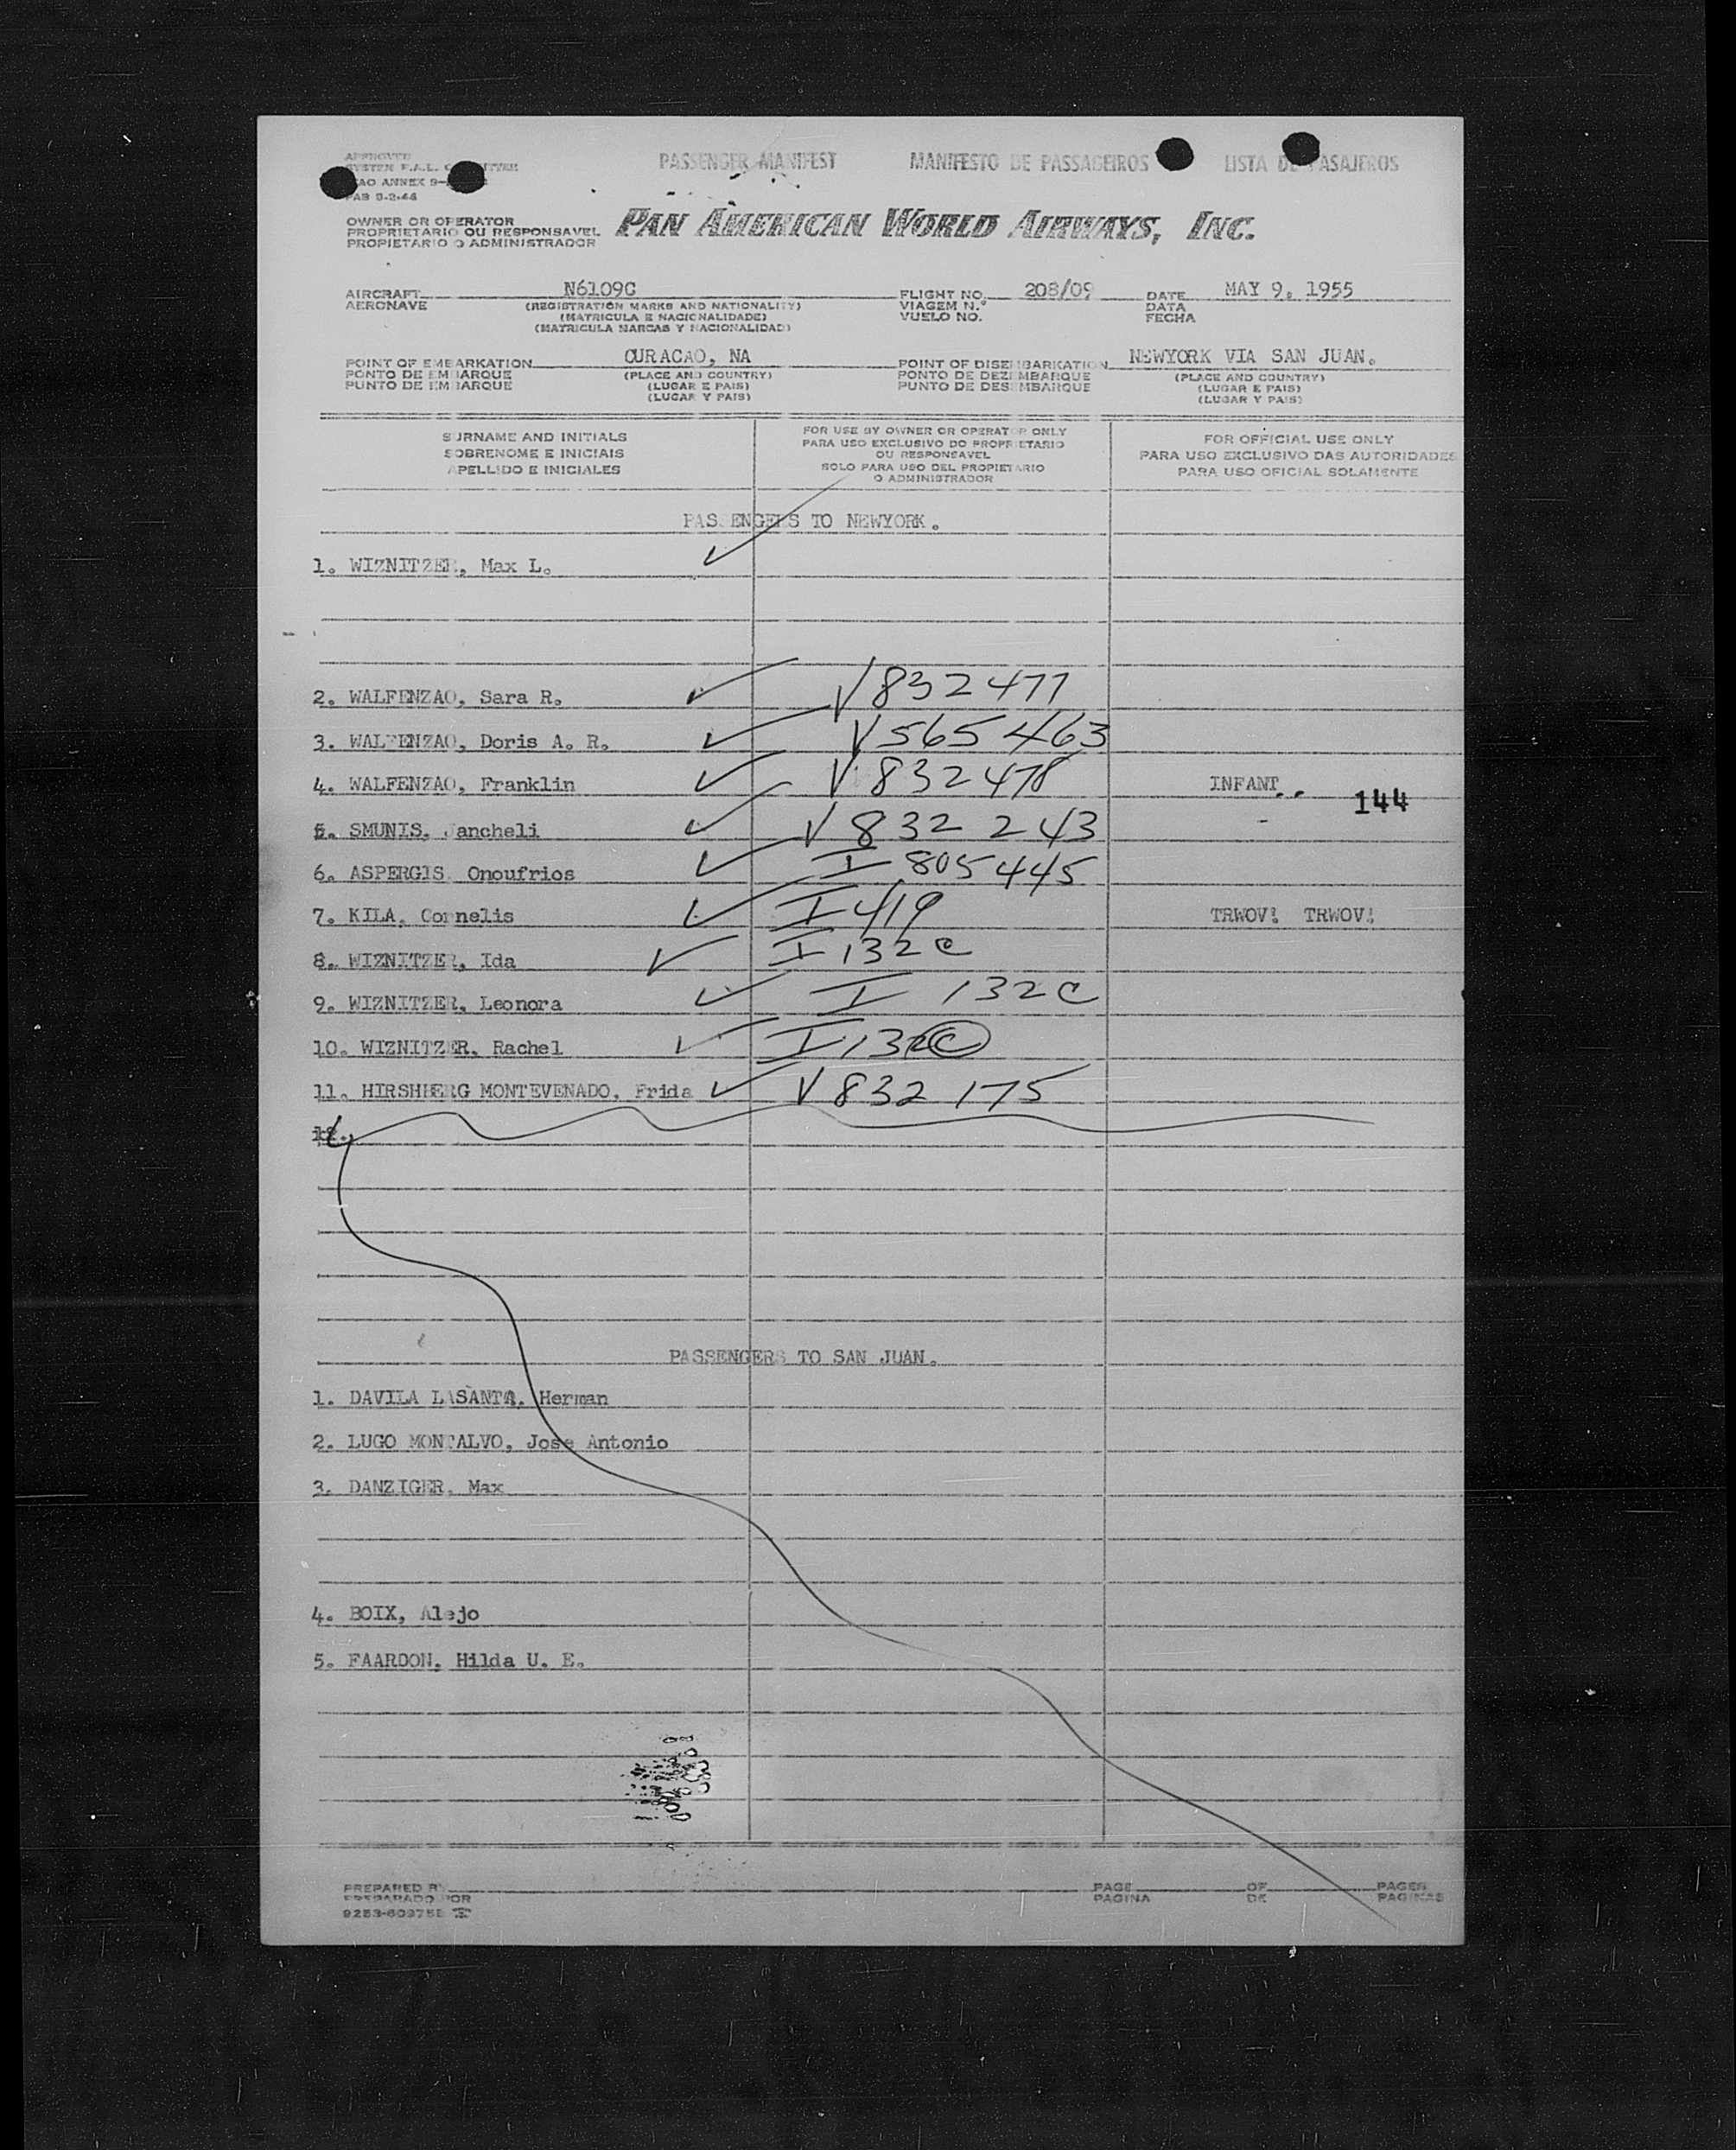 APPROVED PASSENGER MANIFEST MANIFESTO DE PASSAGEIROS LISTA DE PASAJEROS
SYSTEM F.A.L.
ANNEX 9-
OWNER OR OPERATOR
PROPRIETARIO OU RESPONSAVEL
PROPIETARIO O ADMINISTRADOR
PAN AMERICAN WORLD AIRWAYS, INC.
AIRCRAFT N6109C FLIGHT NO. 208/09 DATE MAY 9, 1955
AERONAVE (REGISTRATION MARKS AND NATIONALITY) VIAGEM N.º DATA
(MATRICULA E NACIONALIDADE) VUELO NO. FECHA
(MATRICULA MARCAS Y NACIONALIDAD)
POINT OF EMBARKATION CURACAO, NA POINT OF DISEMBARKATION NEWYORK VIA SAN JUAN.
PONTO DE EMBARQUE (PLACE AND COUNTRY) PONTO DE DEZEMBARQUE (PLACE AND COUNTRY)
PUNTO DE EMBARQUE (LUGAR E PAIS) PUNTO DE DESEMBARQUE (LUGAR E PAIS)
(LUGAR Y PAIS) (LUGAR Y PAIS)
SURNAME AND INITIALS
SOBRENOME E INICIAIS
APELLIDO E INICIALES
FOR USE BY OWNER OR OPERATOR ONLY
PARA USO EXCLUSIVO DO PROPRIETARIO
OU RESPONSAVEL
SOLO PARA USO DEL PROPIETARIO
O ADMINISTRADOR
FOR OFFICIAL USE ONLY
PARA USO EXCLUSIVO DAS AUTORIDADES
PARA USO OFICIAL SOLAMENTE
PASSENGERS TO NEWYORK.
1. WIZNITZER, Max L.
2. WALFENZAO, Sara R. V 832477
3. WALFENZAO, Doris A. R. V 565463
4. WALFENZAO, Franklin V 832478 INFANT.. 144
5. SMUNIS, Jancheli V 832 243
6. ASPERGIS Onoufrios I 805445
7. KILA, Cornelis I 419 TRWOV! TRWOV!
8. WIZNITZER, Ida I 132C
9. WIZNITZER, Leonora I 132C
10. WIZNITZER, Rachel I 132C
11. HIRSHBERG MONTEVENADO, Frida V 832 175
PASSENGERS TO SAN JUAN.
1. DAVILA LASANTA, Herman
2. LUGO MONTALVO, Jose Antonio
3. DANZIGER, Max
4. BOIX, Alejo
5. FAARDON, Hilda U. E.
PREPARED BY PAGE OF PAGES
PREPARADO POR PAGINA DE PAGINAS